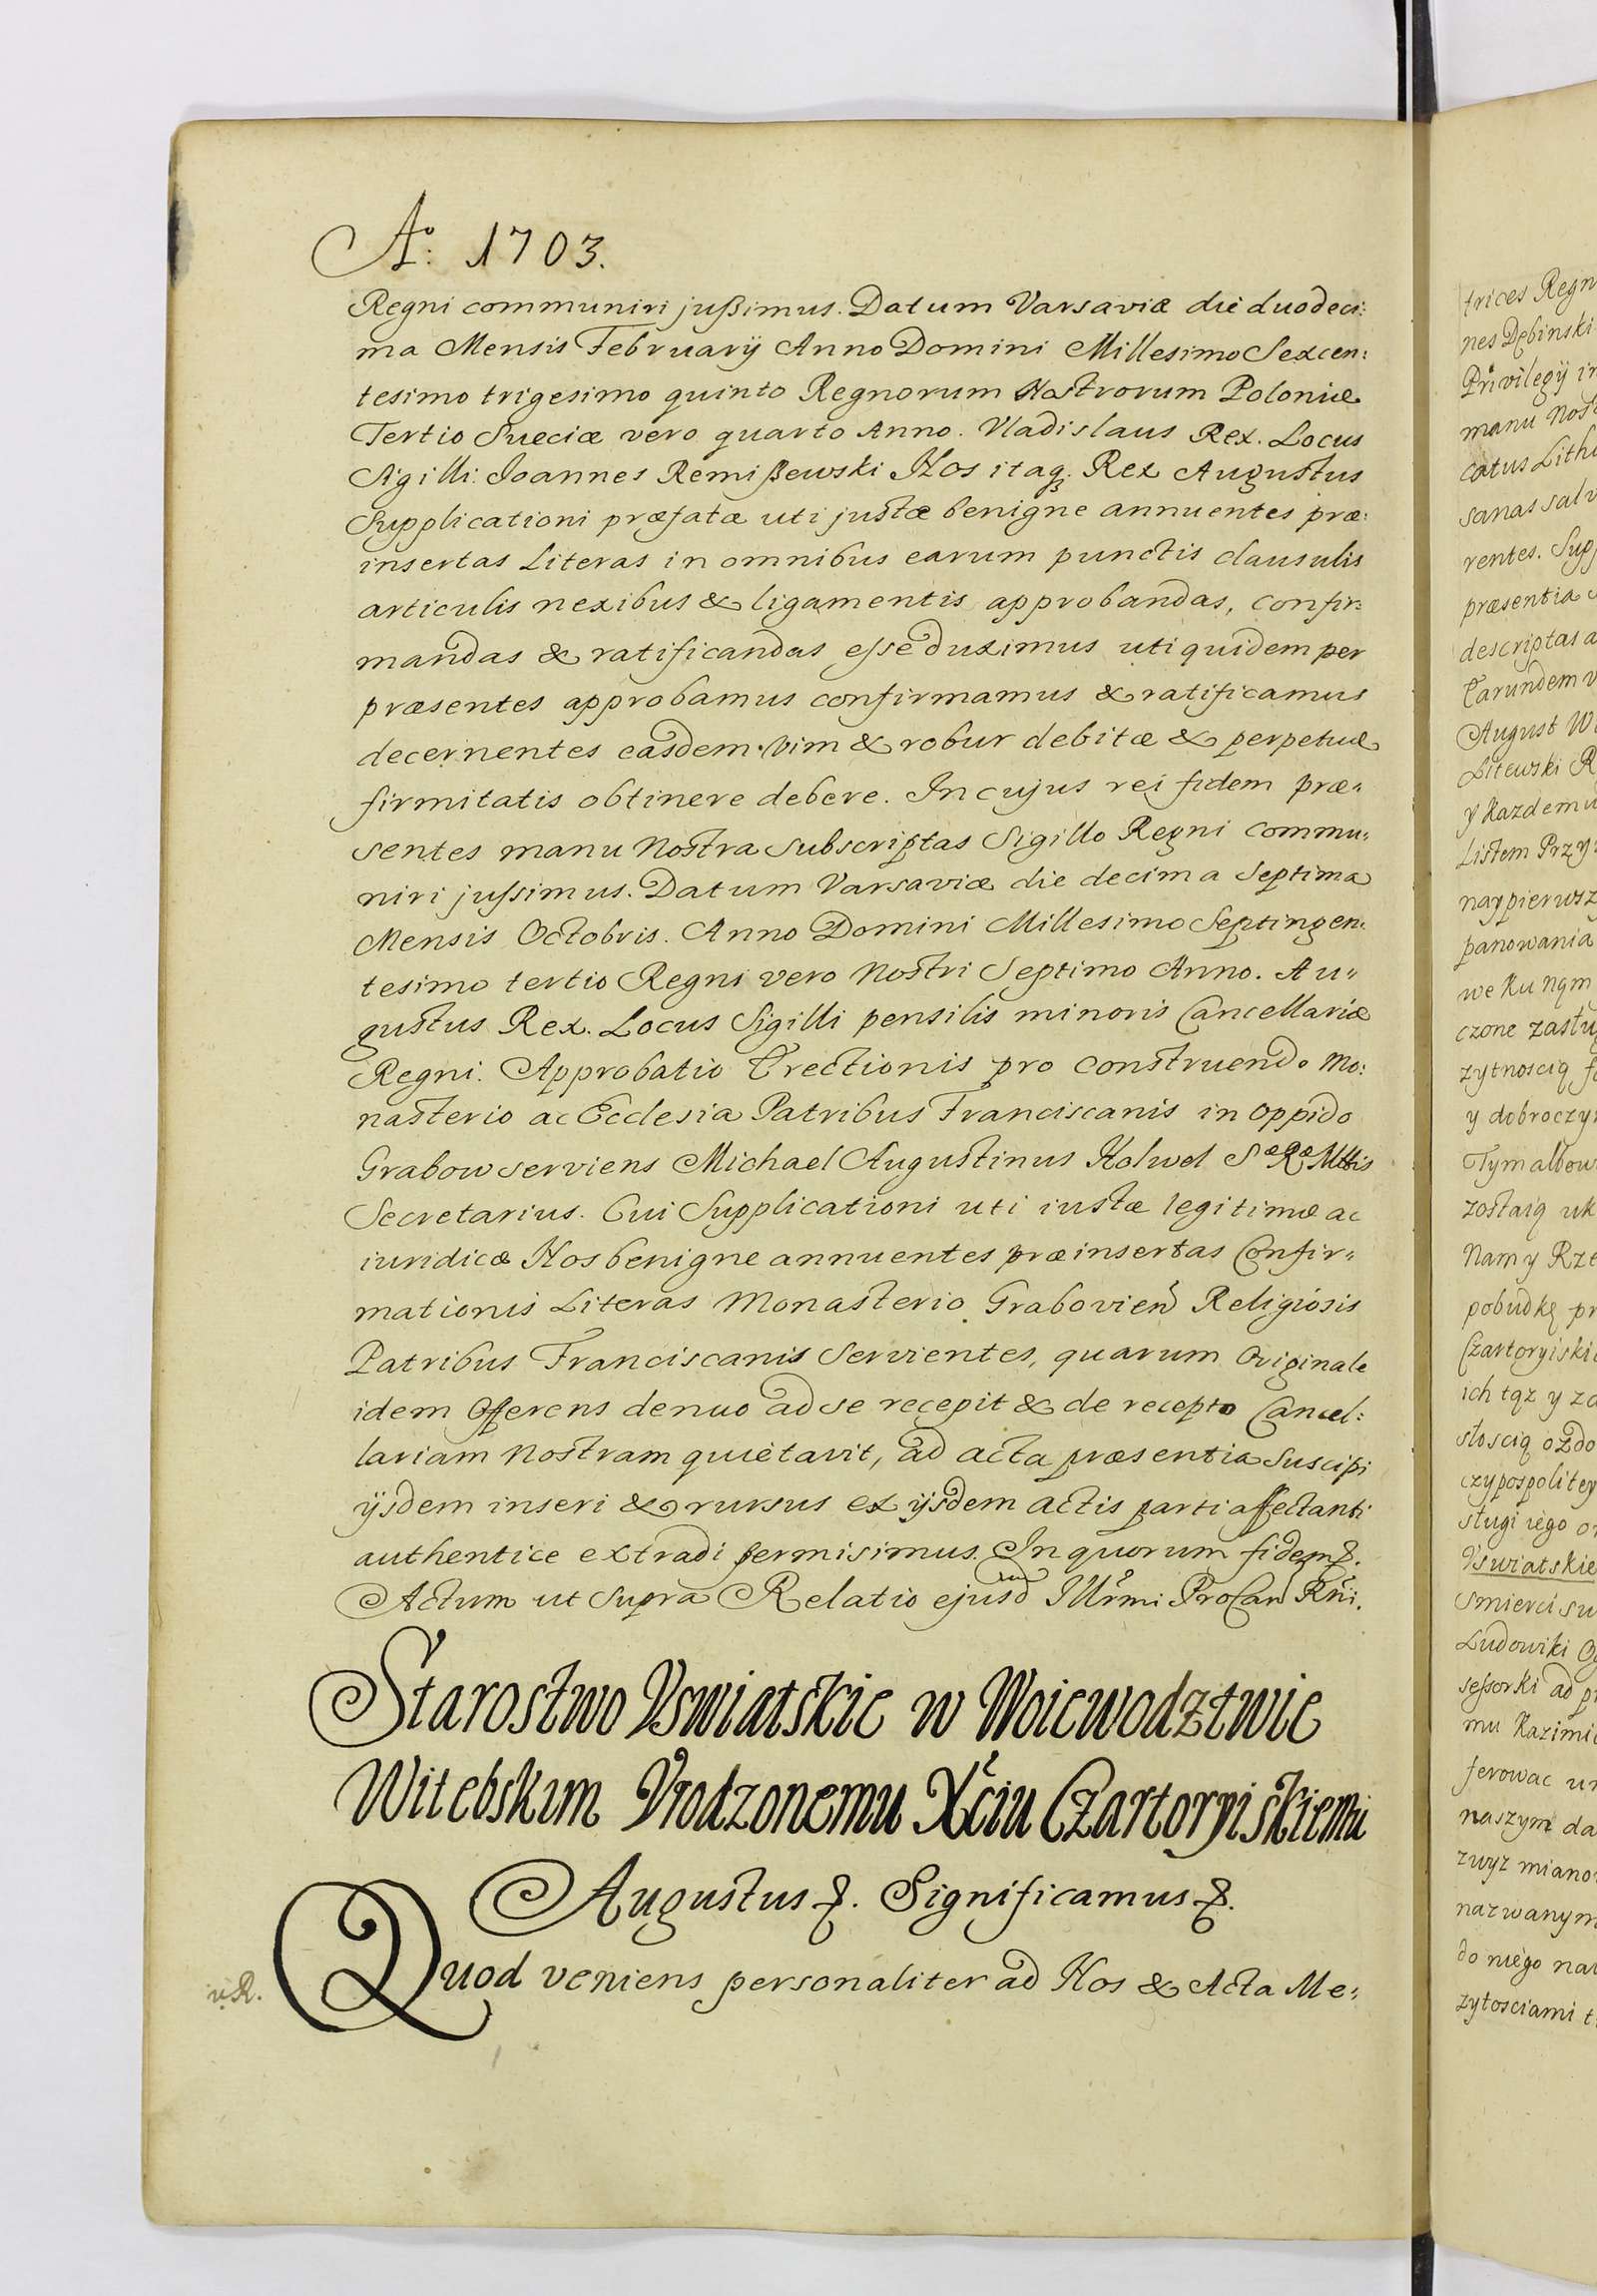 Aº: 1703.
Regni communiri jußimus. Datum Varsaviæ die duodeci:
ma Mensis Februarÿ Anno Domini Millesimo Sexcen:
tesimo trigesimo quinto Regnorum Nostrorum Poloniæ
Tertio Sueciæ vero quarto Anno. Vladislaus Rex. Locus
Sigilli: Joannes Remißewski Nos itaq̃. Rex Augustus
Supplicationi præfatæ uti justæ benigne annuentes præ:
insertas Literas in omnibus earum punctis clausulis
articulis nexibus & ligamentis approbandas, confir:
mandas & ratificandas esse duximus uti quidem per
præsentes approbamus confirmamus & ratificamus
decernentes easdem vim & robur debitæ & perpetuæ
firmitatis obtinere debere. In cujus rei fidem præ"
sentes manu Nostra subscriptas Sigillo Regni commu"
niri jussimus. Datum Varsaviæ die decima Septima
Mensis Octobris. Anno Domini Millesimo Septingen"
tesimo tertio Regni vero Nostri Septimo Anno. Au"
gustus Rex. Locus Sigilli pensilis minoris Cancellariæ
Regni. Approbatio Erectionis pro construendo Mo:
nasterio ac Ecclesia Patribus Franciscanis in oppido
Grabow serviens Michael Augustinus Holwel Sæ Ræ Mttis
Secretarius. Cui Supplicationi uti iustæ legitimæ ac
iuridicæ Nos benigne annuentes præinsertas Confir"
mationis Literas Monasterio Grabovień Religiosis
Patribus Franciscanis servientes, quarum Originale
idem Offerens denuo ad se recepit & de recepto Cancel:
lariam Nostram quietavit, ad acta præsentia suscipi
ijsdem inseri & rursus ex ijsdem actis parti affectanti
authentice extradi permisimus. In quorum fidem &.
Actum ut supra Relatio ejusd Illr̃mi ProCan Rñi.
Starostwo Vswiatskie w Woiewodztwie
Witebskim Vrodzonemu Xćiu Czartoryiskiemu
Augustus &. Significamus &.
v.R.
Quod veniens personaliter ad Nos & Acta Me"
trices Regn
nes Dębinski
Privilegÿ in
manu Nost
catus Lith
sanas salv
rentes. Supp
præsentia
descriptas a
Earundem v
August W
Litewski R
y Kazdemu
Listem Przy
naypierwsz
panowania
we ku nąm
czone zasłu
zytnoscią
y dobroczy
Tym albow
zostaią uk
Nam y Rze
pobudkę pr
Czartoryiski
ich tąz y za
słoscią ozdo
czypospolitey
sługi iego
Vswiatskie
smierci su
Ludowiki
sessorki ad p
mu Kazimi
ferowac
naszym da
zwyz miano
nazwanym
do niego na
zytosciami t